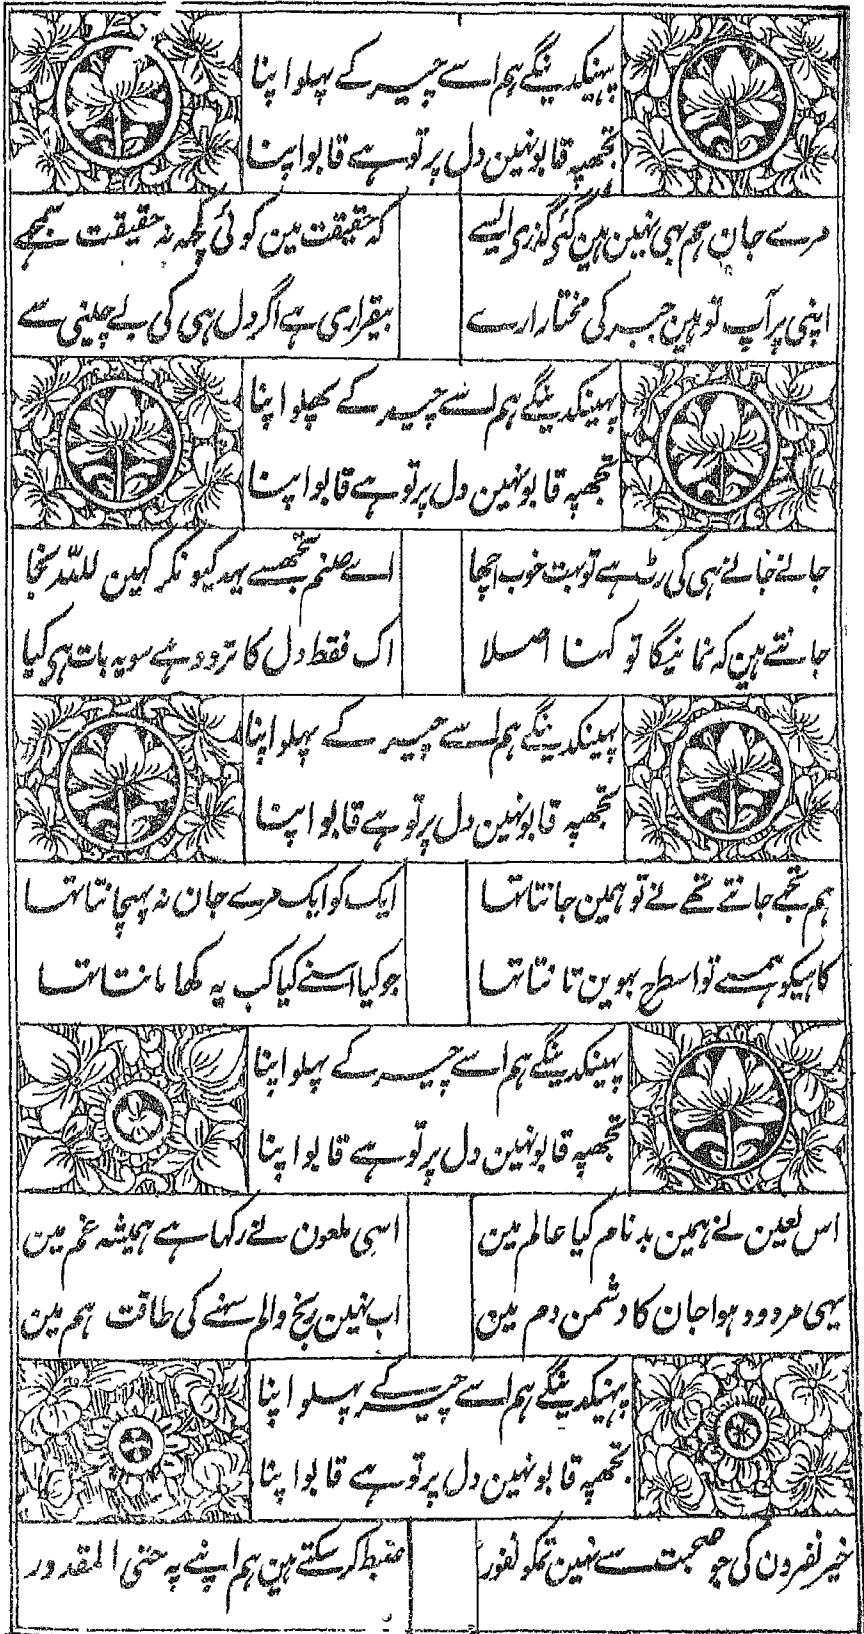 پہینکدینگے ہم اسے چیر کے پہلو اپنا
تجھپہ قابو نہین دل پر تو ہے قابو اپنا
مرے جان ہم بہی نہین ہین گئی گذری ایسے کہ حقیقت مین کوئی کچہہ نہ حقیقت سمجھے
اپنی پر آپ تو ہین جبر کی مختار ارے بیقراری ہے اگر دل ہی کی بے چلینی سے
پہینکدینگے ہم اسے چیر کے پہلو اپنا
تجھپہ قابو نہین دل پر تو ہے قابو اپنا
جانے جانے ہی کی رٹ ہے تو بہت خوب اچھا اے صنم تجھسے یہہ کیونکر کہین للّٰد نجا
جانتے ہین کہ نمانیگا تو کہنا اصلا اک فقط دل کا تردد ہے سو یہ بات ہی کیا
پہینکدینگے ہم اسے چیر کے پہلو اپنا
تجھپہ قابو نہین دل پر تو ہے قابو اپنا
ہم تجھے جانتے تھے نے تو ہمین جانتا تہا ایک کو ایک مرے جان نہ پہچانتا تہا
کاہیکو ہمسے تو اسطرح بہوین تانتا تہا جو کیا اسنے کیا کب یہ کہا مانتا تہا
پہینکدینگے ہم اسے چیر کے پہلو اپنا
تجھپہ قابو نہین دل پر تو ہے قابو اپنا
اس لعین نے ہمین بدنام کیا عالم مین اسی ملعون نے رکہا ہے ہمیشہ غم مین
یہی مردود ہوا جان کا دشمن دم مین اب نہین رنج والم سہنے کی طاقت ہم مین
پہینکدینگے ہم اسے چیر کے پہلو اپنا
تجھپہ قابو نہین دل پر تو ہے قابو اپنا
خیر نفرون کی جو صحبت سے نہین تمکو نفور ضبط کر سکتے ہین ہم اپنے پہ حتی المقدور